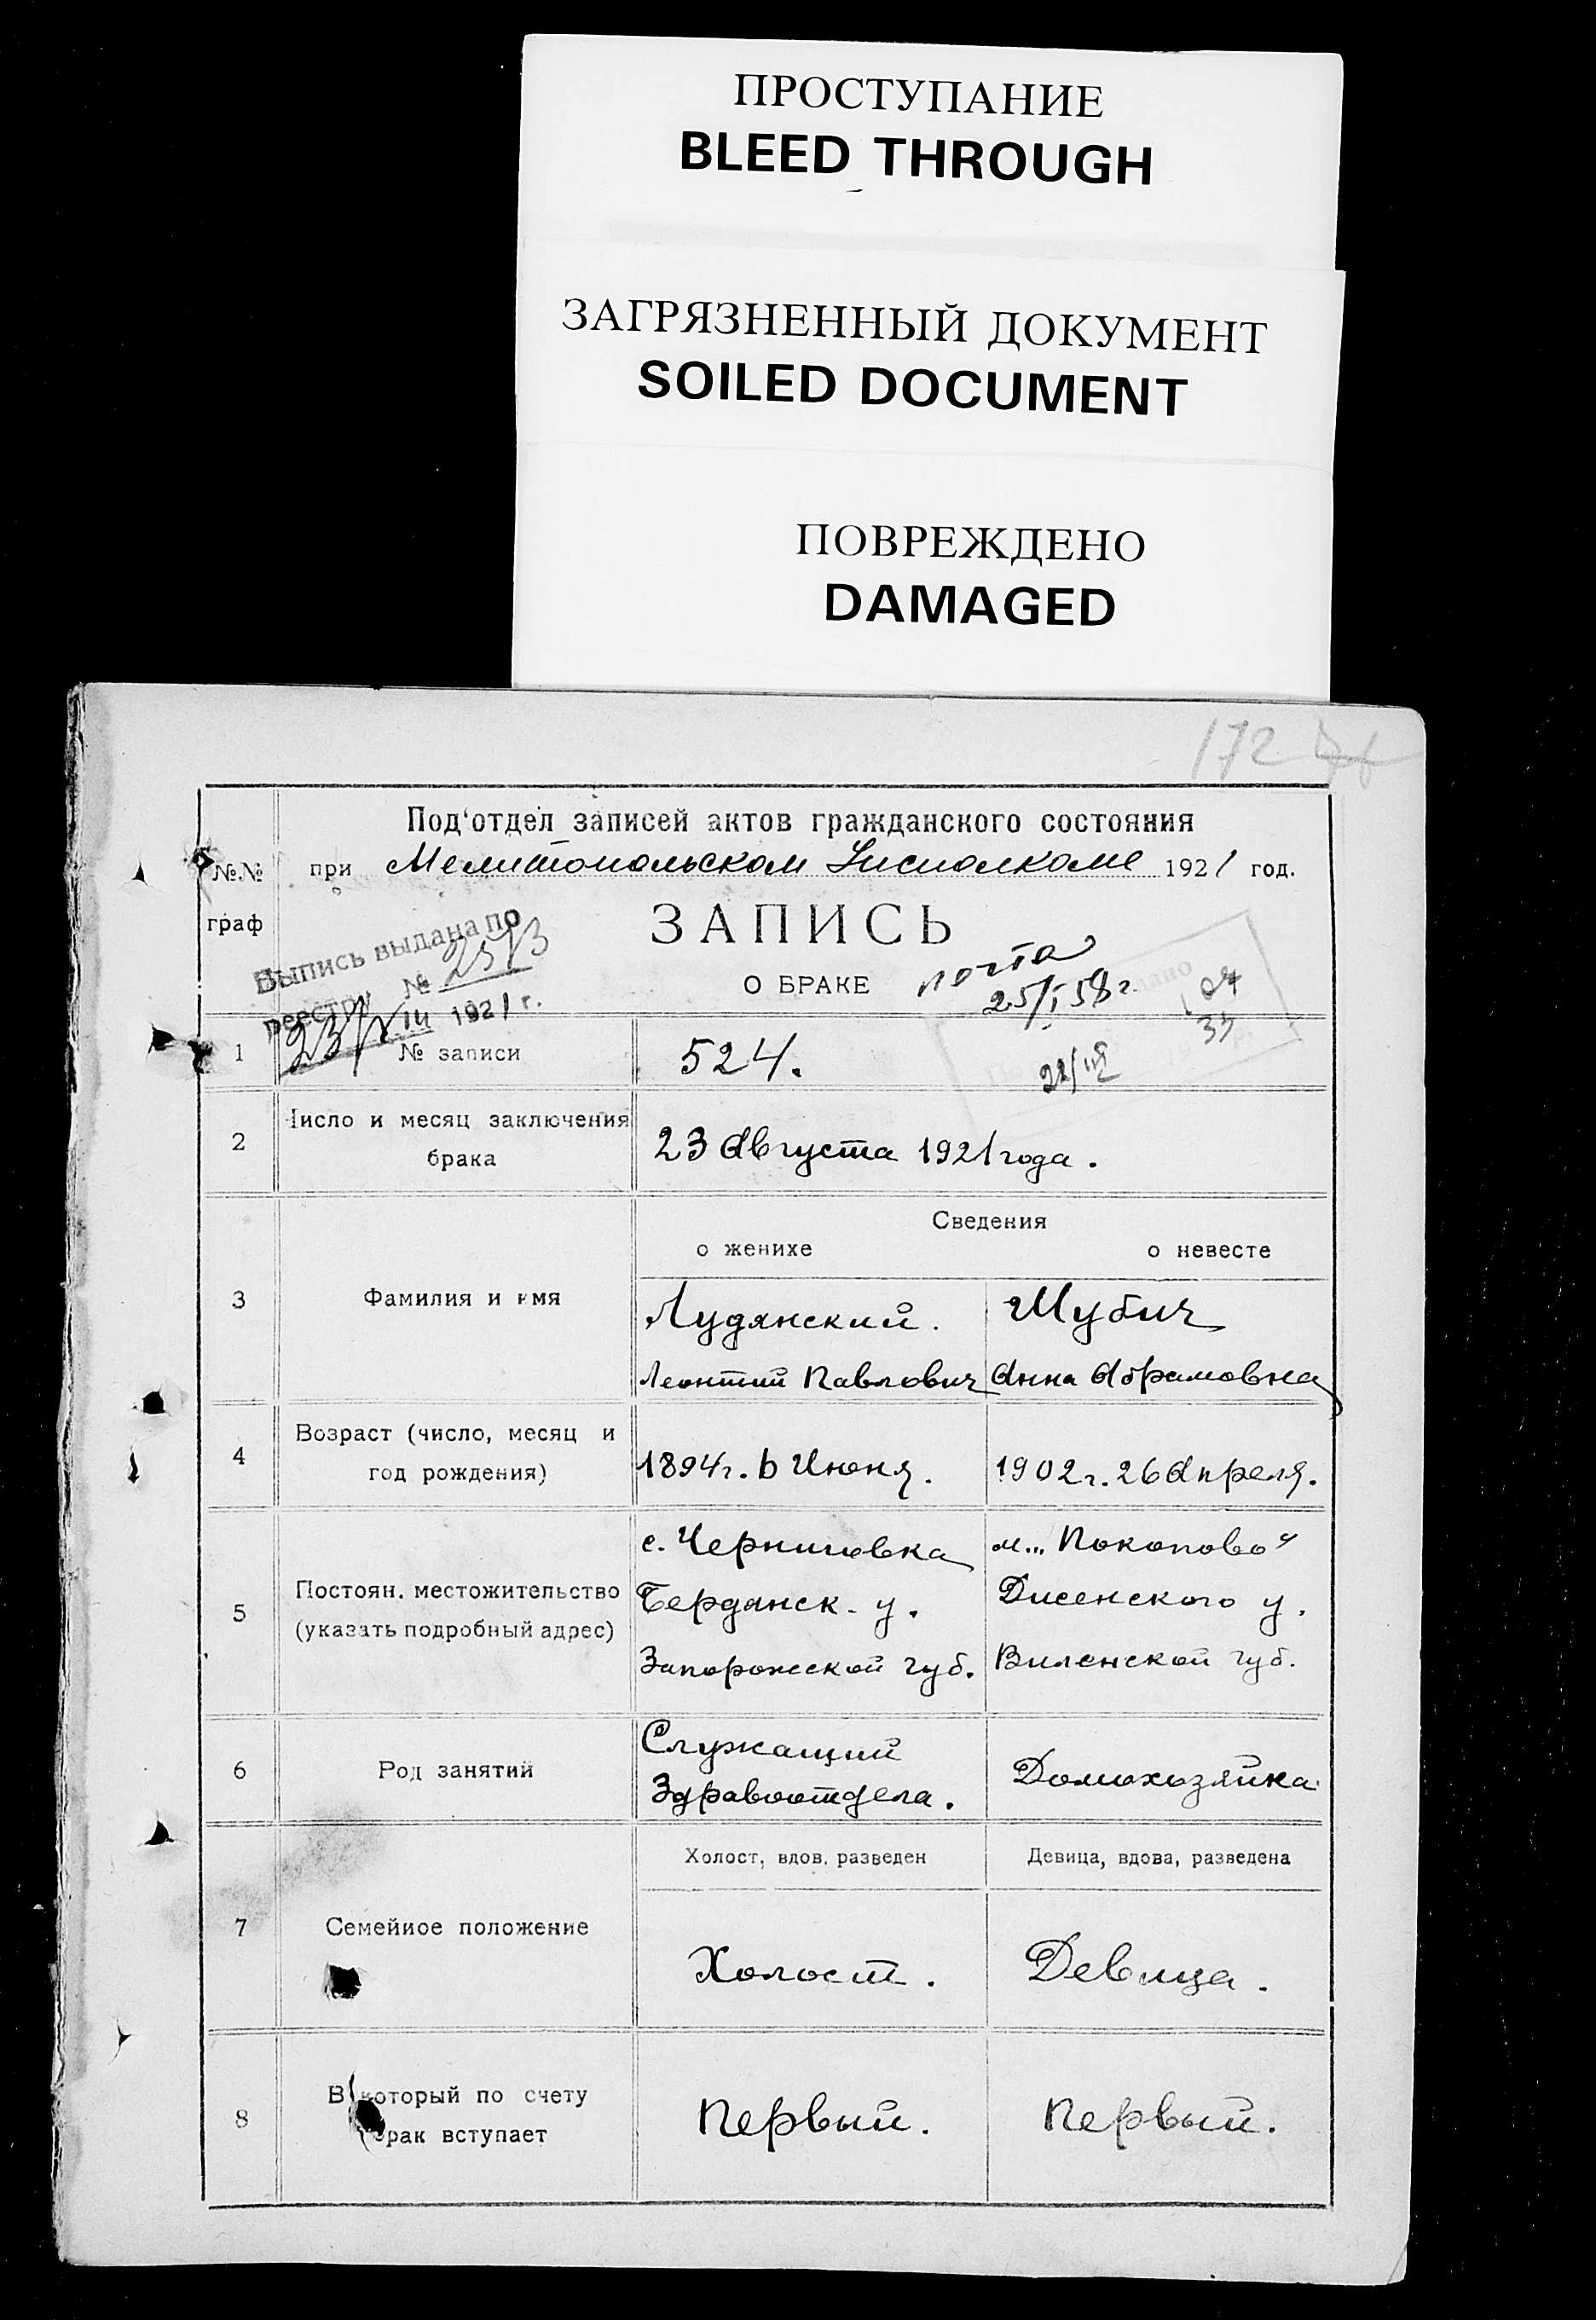 ПРОСТУПАНИЕ
BLEED THROUGH
ЗАГРЯЗНЕННЫЙ ДОКУМЕНТ
SOILED DOCUMENT
ПОВРЕЖДЕНО
DAMAGED
172
Под'отдел записей актов гражданского состояния
№.№ граф
при Мелитопольском Исполкоме 1921 год.
ЗАПИСЬ
О БРАКЕ
Выпись выдана по
реестру № 2513
23/VIII 1921 г.
почта
25/I 58 г.
1 № записи 524.
2 Число и месяц заключения
брака
23 Августа 1921 года.
Сведения
о женихе о невесте
3 Фамилия и имя
Лудянский. Шубич
Леонтий Павлович Анна Абрамовна
4 Возраст (число, месяц и
год рождения)
1894 г. 6 Июня. 1902 г. 26 Апреля.
5 Постоян. местожительство
(указать подробный адрес)
с. Черниговка м. „Покопово"
Бердянск. у. Дисенского у.
Запорожской губ. Виленской губ.
6 Род занятий
Служащий
Здравоотдела. Домохозяйка
Холост, вдов, разведен Девица, вдова, разведена
7 Семейное положение
Холост. Девица.
8 В который по счету
брак вступает
Первый. Первый.